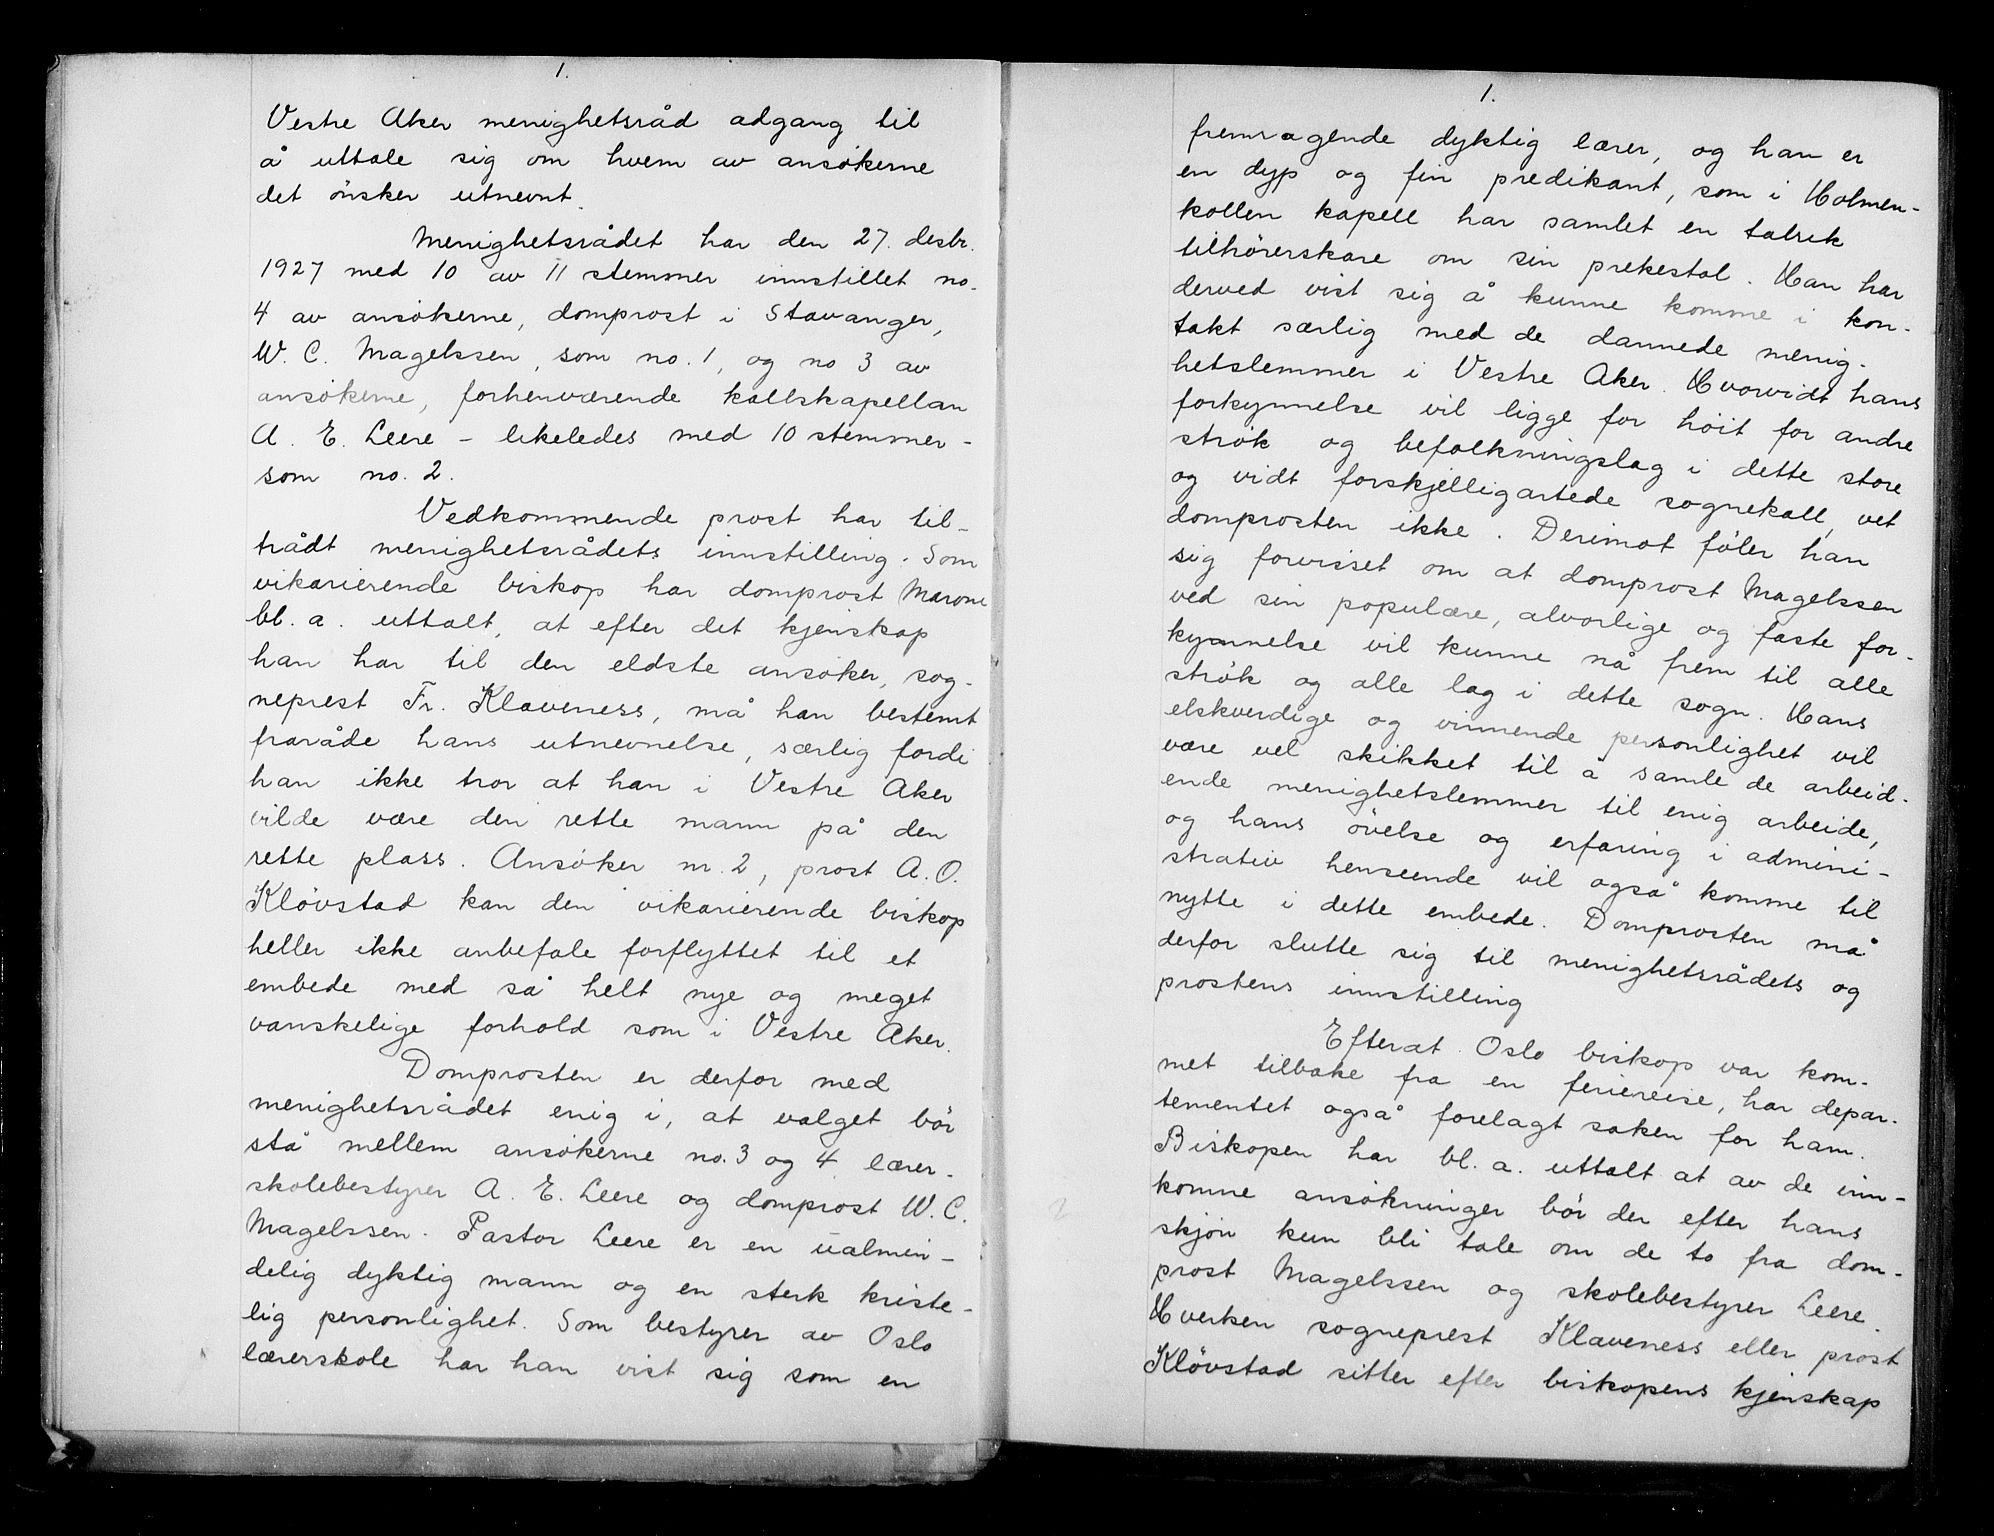 1.
Vestre Aker menighetsråd adgang til
å uttale sig om hvem av ansøkerne
det ønsker utnevnt.
Menighetsrådet har den 27. desbr.
1927 med 10 av 11 stemmer innstillet no.
4 av ansøkerne, domprost i Stavanger,
W. C. Magelssen, som no. 1, og no 3 av
ansøkerne, forhenværende kallskapellan
A. E. Leere - likeledes med 10 stemmer -
som no. 2.
Vedkommende prost har til-
trådt menighetsrådets innstilling. Som
vikarierende biskop har domprost Maroni
bl. a. uttalt, at efter det kjenskap
han har til den eldste ansøker, sog-
neprest Fr. Klaveness, må han bestemt
fraråde hans utnevnelse, særlig fordi
han ikke tror at han i Vestre Aker
vilde være den rette mann på den
rette plass. Ansøker nr. 2, prost A. O.
Kløvstad kan den vikarierende biskop
heller ikke anbefale forflyttet til et
embede med så helt nye og meget
vanskelige forhold som i Vestre Aker.
Domprosten er derfor med
menighetsrådet enig i, at valget bør
stå mellem ansøkerne no. 3 og 4 lærer-
skolebestyrer A. E. Leere og domprost W. C.
Magelssen. Pastor Leere er en ualmin-
delig dyktig mann og en sterk kriste-
lig personlighet. Som bestyrer av Oslo
lærerskole har han vist sig som en
1.
fremragende dyktig lærer, og han er
en dyp og fin predikant, som i Holmen-
kollen kapell har samlet en talrik
tilhørerskare om sin prekestol. Han har
derved vist sig å kunne komme i kon-
takt særlig med de dannede menig-
hetslemmer i Vestre Aker. Hvorvidt hans
forkynnelse vil ligge for høit for andre
strøk og befolkningslag i dette store
og vidt forskjelligartede sognekall, vet
domprosten ikke. Derimot føler han
sig forvisset om at domprost Magelssen
ved sin populære, alvorlige og faste for-
kynnelse vil kunne nå frem til alle
strøk og alle lag i dette sogn. Hans
elskverdige og vinnende personlighet vil
være vel skikket til å samle de arbeid-
ende menighetslemmer til enig arbeide,
og hans øvelse og erfaring i admini-
strativ henseende vil også komme til
nytte i dette embede. Domprosten må
derfor slutte sig til menighetsrådets og
prostens innstilling
Efterat Oslo biskop var kom-
met tilbake fra en feriereise, har depar-
tementet også forelagt saken for ham.
Biskopen har bl. a. uttalt at av de inn-
komne ansøkninger bør der efter hans
skjøn kun bli tale om de to fra dom-
prost Magelssen og skolebestyrer Leere.
Hverken sogneprest Klaveness eller prost
Kløvstad sitter efter biskopens kjenskap